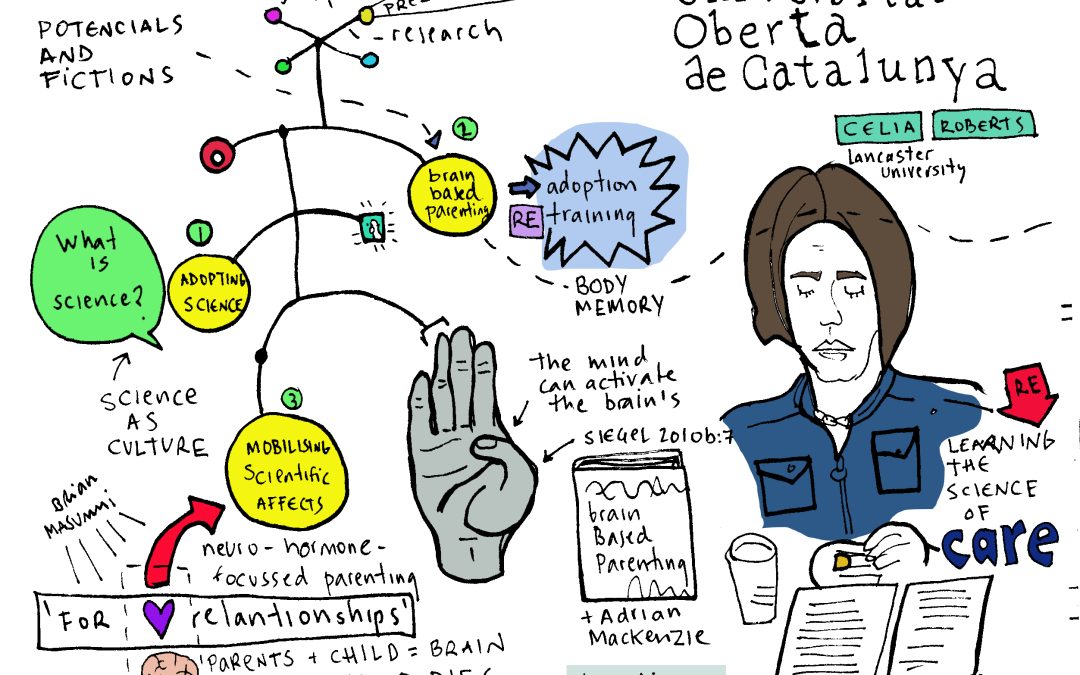 POTENCIALS
AND
FICTIONS
-research
Oberta
de Catalunya
CELIA ROBERTS
Lancaster
University
2
brain
based
parenting
adoption
RE training
BODY
MEMORY
1
What
is
science?
ADOPTING
SCIENCE
SCIENCE
AS
CULTURE
3
MOBILISING
Scientific
AFFECTS
the mind
can activate
the brain's
SIEGEL 2010b:7
brain
Based
Parenting
+ Adrian
Mackenzie
RE
LEARNING
THE
SCIENCE
OF
care
Brian
MASUMMI
neuro-hormone-
focussed parenting
'FOR relantionships'
PARENTS + CHILD = BRAIN